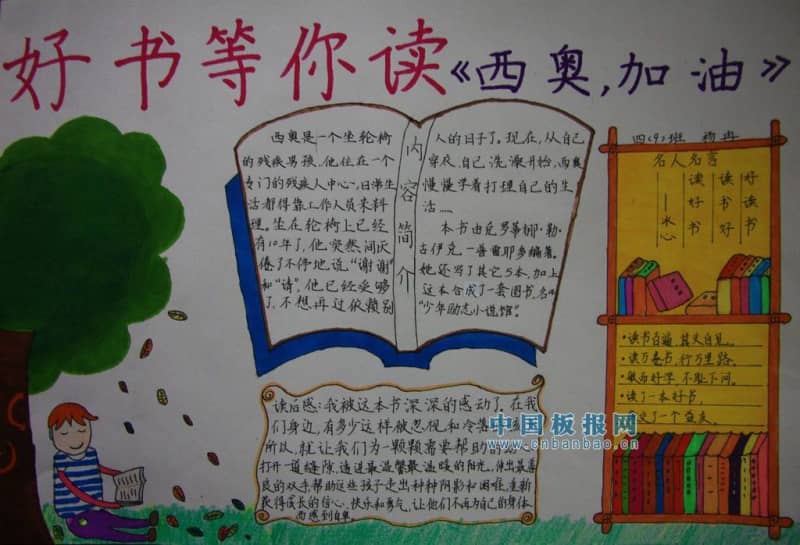 好书等你读《西奥,加油》
西奥是一个坐轮椅
的残疾男孩,他住在一个
专门的残疾人中心,日常生
活都得靠工作人员来料
理。坐在轮椅上已经
有10年了,他突然间厌
倦了不停地说“谢谢”
和“请”,他已经受够
了,不想再过依赖别
内容简介
人的日子了。现在,从自己
穿衣、自己洗漱开始,西奥
慢慢学着打理自己的生
活……
本书由
她还写了其它5本,加上
这本合成了一套图书,名叫
“少年励志小说馆”。
四(9)班
名人名言
好读书
读书好
读好书
——冰心
·读书百遍,其义自见。
·读万卷书,行万里路。
·敏而好学,不耻下问。
·读了一本好书,
读后感:我被这本书深深的感动了。在我
们身边,有多少这样被忽视和冷落
所以,就让我们为一颗颗需要帮助的
打开一道缝隙,透进最温馨最温暖的阳光,伸出最善
良的双手帮助这些孩子走出种种阴影和困难,重新
获得成长的信心、快乐和勇气,让他们不再为自己的身体
而感到自卑。
中国板报网
www.cnbanbao.cn